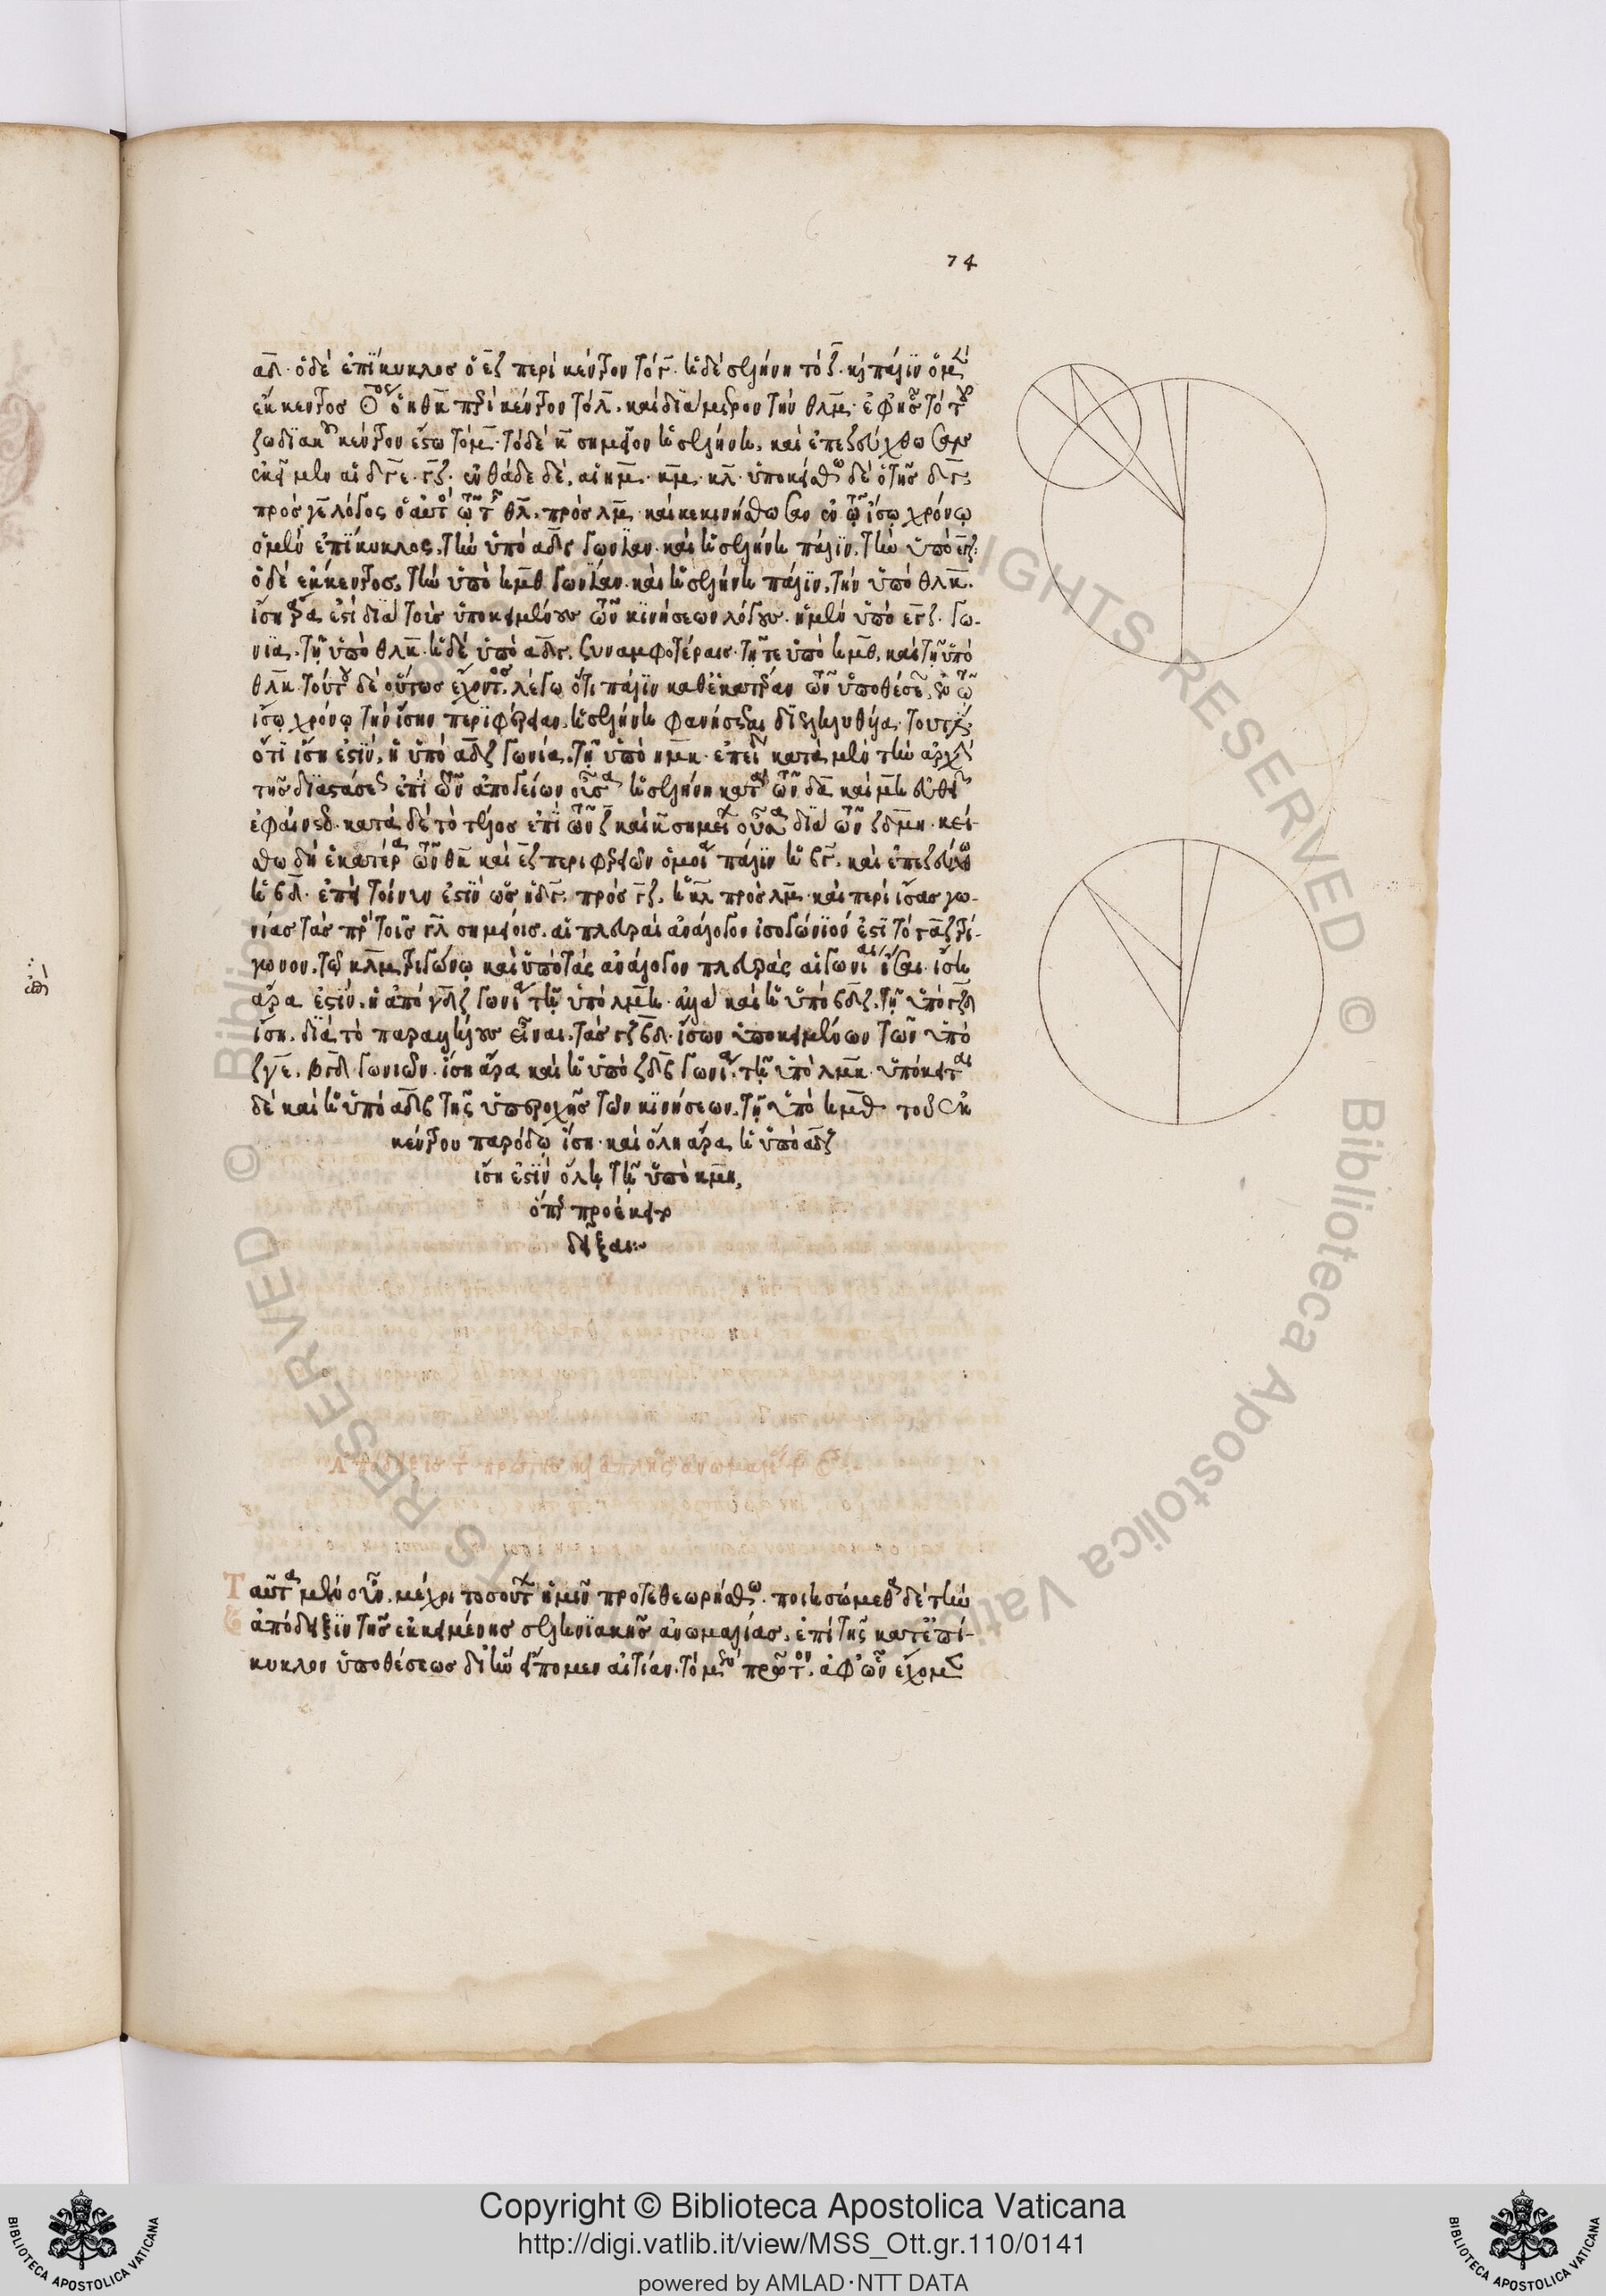 74
αδ. ὁ δὲ ἐπίκυκλος ὁ εζ περὶ κέντρον τὸ γ. ἡ δὲ σελήνη τὸ ζ. καὶ πάλιν ὁ μὲν
ἔκκεντρος ὁ ηθκ περὶ κέντρον τὸ λ. καὶ διάμετρον τὴν θλμ. ἐφ ἧς τὸ τοῦ
ζωδιακοῦ κέντρον ἔστω τὸ μ. τὸ δὲ κ σημεῖον ἡ σελήνη. καὶ ἐπεζεύχθωσαν
ἐκεῖ μὲν αἱ δγε. γζ. ἐνθάδε δὲ, αἱ ημ. κμ. κλ. ὑποκείσθω δὲ ὁ τῆς δγ
πρὸς γε λόγος ὁ αὐτὸς τῷ τῆς θλ. πρὸς λμ. καὶ κεκινήσθωσαν ἐν τῷ ἴσῳ χρόνῳ
ὁ μὲν ἐπίκυκλος, τὴν ὑπὸ αδγ γωνίαν. καὶ ἡ σελήνη πάλιν, τὴν ὑπὸ εγζ.
ὁ δὲ ἔκκεντρος, τὴν ὑπὸ ημθ γωνίαν. καὶ ἡ σελήνη πάλιν, τὴν ὑπὸ θλκ.
ἴση ἄρα ἐστὶ διὰ τοὺς ὑποκειμένους τῶν κινήσεων λόγους. ἡ μὲν ὑπὸ εγζ. γω-
νία. τῇ ὑπὸ θλκ. ἡ δὲ ὑπὸ αδγ, συναμφοτέραις. τῇ τε ὑπὸ ημθ, καὶ τῇ ὑπὸ
θλκ. τούτων δὲ οὕτως ἐχόντων, λέγω ὅτι πάλιν καθ ἑκατέραν τῶν ὑποθέσεων, ἐν τῷ
ἴσῳ χρόνῳ τὴν ἴσην περιφέρειαν. ἡ σελήνη φανήσεται διεληλυθυῖα. τουτέστιν
ὅτι ἴση ἐστὶν, ἡ ὑπὸ αδζ γωνία. τῇ ὑπὸ ημκ. ἐπειδὴ κατὰ μὲν τὴν ἀρχὴν
τῆς διαστάσεως ἐπὶ τῶν ἀπογείων οὖσα ἡ σελήνη κατὰ τῶν δα καὶ μη εὐθειῶν
ἐφαίνετο. κατὰ δὲ τὸ τέλος ἐπὶ τῶν ζ καὶ κ σημείων οὖσα διὰ τῶν ζδ μκ. κεί-
σθω δὴ ἑκατέρᾳ τῶν θκ καὶ εζ περιφερειῶν ὁμοία πάλιν ἡ βγ. καὶ ἐπεζεύχθω
ἡ βδ. ἐπεὶ τοίνυν ἐστὶν ὡς ἡ δγ. πρὸς γζ. ἡ κλ πρὸς λμ. καὶ περὶ ἴσας γω-
νίας τὰς πρὸς τοῖς γλ σημείοις. αἱ πλευραὶ ἀνάλογον ἰσογώνιόν ἐστι τὸ γδζ τρί-
γωνον. τῷ κλμ τριγώνῳ καὶ ὑπὸ τὰς ἀνάλογον πλευρὰς αἱ γωνίαι ἴσαι. ἴση
ἄρα ἐστὶν. ἡ ἀπὸ γδζ γωνία τῇ ὑπὸ λμκ. ἀλλὰ καὶ ἡ ὑπὸ βδζ. τῇ ὑπὸ γζδ
ἴση. διὰ τὸ παραλλήλους εἶναι. τὰς γζ βδ. ἴσων ὑποκειμένων τῶν ὑπὸ
ζγε. βγδ γωνιῶν. ἴση ἄρα καὶ ἡ ὑπὸ ζδβ γωνία. τῇ ὑπὸ λμκ. ὑπόκειται
δὲ καὶ ἡ ὑπὸ αδβ τῆς ὑπεροχῆς τῶν κινήσεων. τῇ ὑπὸ ημθ τοῦ ἐκ
κέντρου παρόδῳ ἴση. καὶ ὅλη ἄρα ἡ ὑπὸ αδζ
ἴση ἐστὶν ὅλῃ τῇ ὑπὸ κμη,
ὅπερ προέκειτο
δεῖξαι:~
Ταῦτα μὲν οὖν. μέχρι τοσούτων ἡμῖν προτεθεωρήσθω. ποιησόμεθα δὲ τὴν
ἀπόδειξιν τῆς ἐκκειμένης σεληνιακῆς ἀνωμαλίας, ἐπὶ τῆς κατ ἐπί-
κυκλον ὑποθέσεως δι ἣν εἴπομεν αἰτίαν. τὸ μὲν πρῶτον. ἀφ ὧν ἔχομεν
Copyright © Biblioteca Apostolica Vaticana
http://digi.vatlib.it/view/MSS_Ott.gr.110/0141
powered by AMLAD·NTT DATA